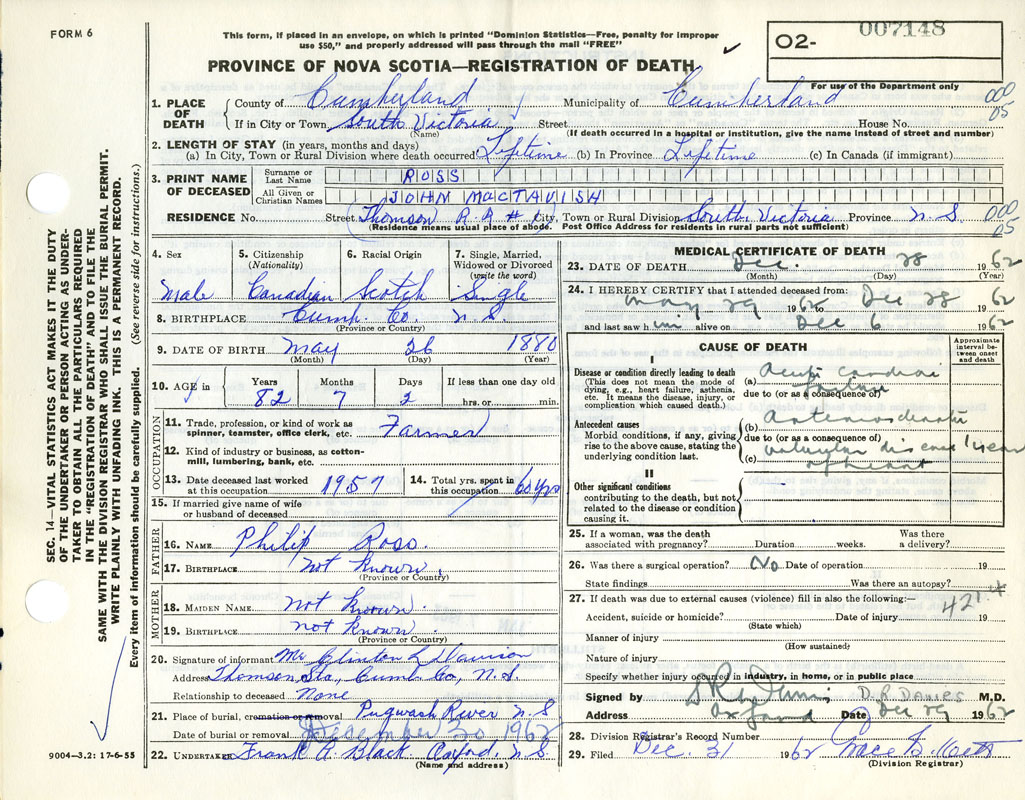 FORM 6
This form, if placed in an envelope, on which is printed "Dominion Statistics—Free, penalty for improper
use $50," and properly addressed will pass through the mail "FREE"
PROVINCE OF NOVA SCOTIA—REGISTRATION OF DEATH
02- 007148
For use of the Department only
1. PLACE OF DEATH
County of Cumberland Municipality of Cumberland 000
If in City or Town South Victoria Street House No. 05
(Name) (If death occurred in a hospital or institution, give the name instead of street and number)
2. LENGTH OF STAY (in years, months and days)
(a) In City, Town or Rural Division where death occurred Lifetime (b) In Province Lifetime (c) In Canada (if immigrant)
3. PRINT NAME OF DECEASED
Surname or Last Name ROSS
All Given or Christian Names JOHN MACTAVISH
RESIDENCE No. Street Thomson R.R # City, Town or Rural Division South Victoria Province N.S. 000
(Residence means usual place of abode. Post Office Address for residents in rural parts not sufficient) 05
4. Sex Male
5. Citizenship (Nationality) Canadian
6. Racial Origin Scotch
7. Single, Married, Widowed or Divorced (write the word) Single
8. BIRTHPLACE Cump. Co. N.S.
(Province or Country)
9. DATE OF BIRTH May 26 1880
(Month) (Day) (Year)
10. AGE in Years 82 Months 7 Days 2 If less than one day old hrs. or min.
OCCUPATION
11. Trade, profession, or kind of work as
spinner, teamster, office clerk, etc. Farmer
12. Kind of industry or business, as cotton-
mill, lumbering, bank, etc.
13. Date deceased last worked at this occupation 1957 14. Total yrs. spent in this occupation 60 yrs
15. If married give name of wife
or husband of deceased
FATHER
16. NAME Philip Ross.
17. BIRTHPLACE not known.
(Province or Country)
MOTHER
18. MAIDEN NAME not known.
19. BIRTHPLACE not known
(Province or Country)
20. Signature of informant Mr Clinton L Dawson
Address Thomson Sta, Cumb Co, N.S.
Relationship to deceased None
21. Place of burial, cremation or removal Pugwash River N.S
Date of burial or removal December 30 1962
22. UNDERTAKER Frank A. Black Oxford, N.S.
(Name and address)
MEDICAL CERTIFICATE OF DEATH
23. DATE OF DEATH Dec. 28 1962
(Month) (Day) (Year)
24. I HEREBY CERTIFY that I attended deceased from:
May 29 1962 to Dec 28 1962
and last saw him alive on Dec 6 1962
CAUSE OF DEATH
Approximate interval between onset and death
I
Disease or condition directly leading to death
(This does not mean the mode of
dying, e.g., heart failure, asthenia,
etc. It means the disease, injury, or
complication which caused death.)
(a) Acute cardiac failure
due to (or as a consequence of)
Antecedent causes
Morbid conditions, if any, giving
rise to the above cause, stating the
underlying condition last.
(b)
due to (or as a consequence of)
(c) valvular disease of heart 1 year
II
Other significant conditions
contributing to the death, but not
related to the disease or condition
causing it.
25. If a woman, was the death Was there
associated with pregnancy? Duration weeks. a delivery?
26. Was there a surgical operation? No Date of operation 19
State findings Was there an autopsy?
27. If death was due to external causes (violence) fill in also the following:— 421
Accident, suicide or homicide? Date of injury 19
(State which)
Manner of injury
(How sustained)
Nature of injury
Specify whether injury occurred in industry, in home, or in public place
Signed by D.R. DAVIES M.D.
Address Oxford Date Dec 29 1962
28. Division Registrar's Record Number
29. Filed Dec. 31 1962 Grace
(Division Registrar)
SEC. 14—VITAL STATISTICS ACT MAKES IT THE DUTY
OF THE UNDERTAKER OR PERSON ACTING AS UNDER-
TAKER TO OBTAIN ALL THE PARTICULARS REQUIRED
IN THE "REGISTRATION OF DEATH" AND TO FILE THE
SAME WITH THE DIVISION REGISTRAR WHO SHALL ISSUE THE BURIAL PERMIT.
WRITE PLAINLY WITH UNFADING INK. THIS IS A PERMANENT RECORD.
Every item of information should be carefully supplied. (See reverse side for instructions.)
9004—3.2: 17-6-55